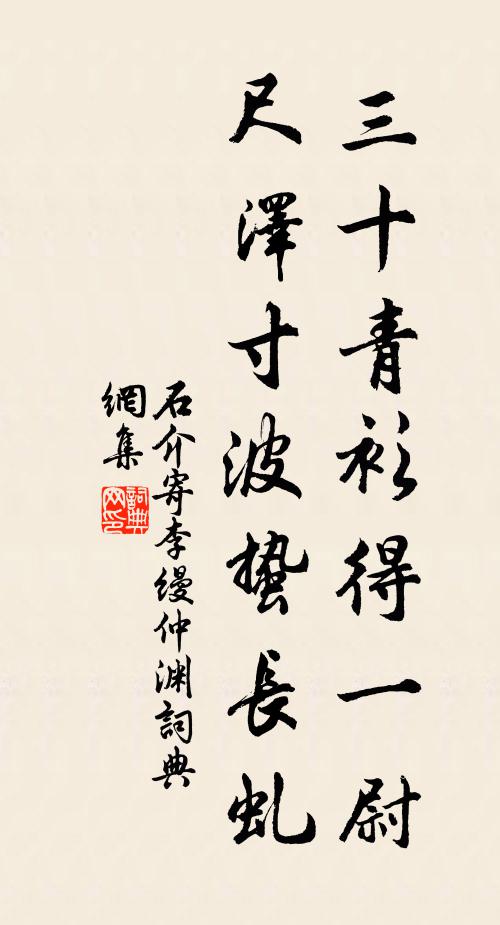 三十青衫得一尉
尺澤寸波蟄長虬
石介寄李縵仲淵詞典
網集
詞典网印